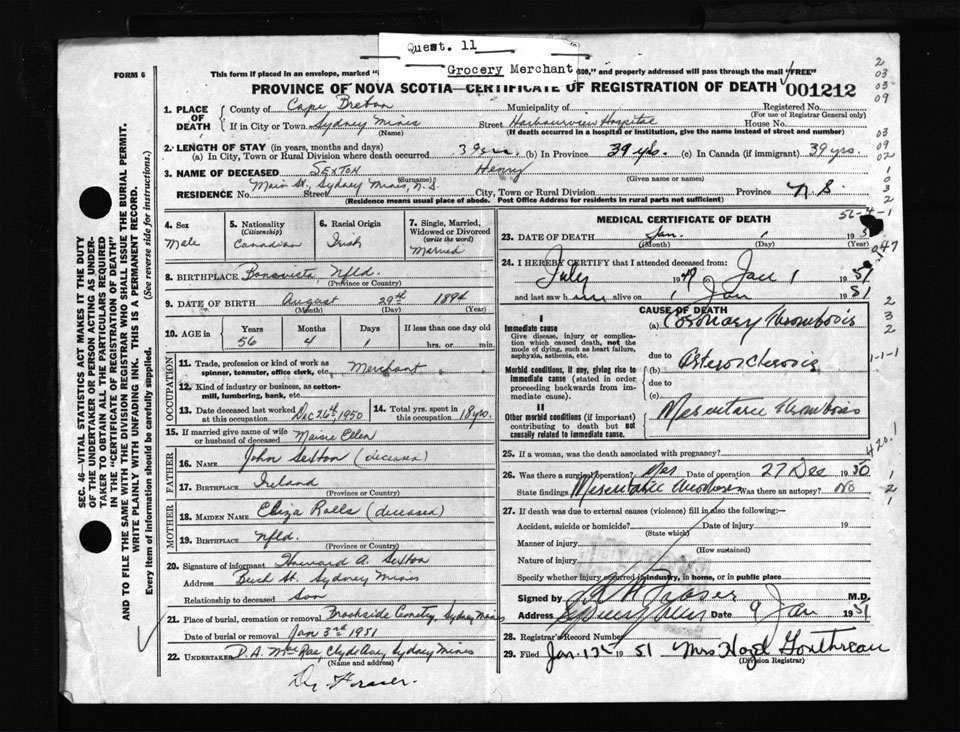 Quest. 11
Grocery Merchant
FORM 6
This form if placed in an envelope, marked "
," and properly addressed will pass through the mail "FREE"
PROVINCE OF NOVA SCOTIA—CERTIFICATE OF REGISTRATION OF DEATH 001212
1. PLACE OF DEATH
County of Cape Breton Municipality of Registered No.
(For use of Registrar General only)
If in City or Town Sydney Mines Street Harbourview Hospital House No.
(Name) (If death occurred in a hospital or institution, give the name instead of street and number)
2. LENGTH OF STAY (in years, months and days)
(a) In City, Town or Rural Division where death occurred 39 yrs. (b) In Province 39 yrs. (c) In Canada (if immigrant) 39 yrs.
3. NAME OF DECEASED Sexton Henry
(Surname) (Given name or names)
RESIDENCE No. Street Main St. Sydney Mines, N.S. City, Town or Rural Division Province N.S.
(Residence means usual place of abode. Post Office Address for residents in rural parts not sufficient)
4. Sex
Male
5. Nationality
(Citizenship)
Canadian
6. Racial Origin
Irish
7. Single, Married, Widowed or Divorced
(write the word)
Married
8. BIRTHPLACE Bonavista Nfld.
(Province or Country)
9. DATE OF BIRTH August 29th 1894
(Month) (Day) (Year)
10. AGE in Years Months Days If less than one day old
56 4 1 hrs. or min.
OCCUPATION
11. Trade, profession or kind of work as spinner, teamster, office clerk, etc. Merchant
12. Kind of industry or business, as cotton-mill, lumbering, bank, etc.
13. Date deceased last worked at this occupation Dec 26th 1950
14. Total yrs. spent in this occupation 18 yrs.
15. If married give name of wife or husband of deceased Maisie Ellen
FATHER
16. Name John Sexton (deceased)
17. BIRTHPLACE Ireland
(Province or Country)
MOTHER
18. MAIDEN NAME Eliza Ralls (deceased)
19. BIRTHPLACE Nfld.
(Province or Country)
20. Signature of informant Howard A. Sexton
Address Beech St. Sydney Mines
Relationship to deceased Son
21. Place of burial, cremation or removal Brookside Cemetery, Sydney Mines
Date of burial or removal Jan 3rd 1951
22. UNDERTAKER D.A. McRae Clyde Ave, Sydney Mines
(Name and address)
Dr. Fraser.
MEDICAL CERTIFICATE OF DEATH
23. DATE OF DEATH Jan. 1 195
(Month) (Day) (Year)
24. I HEREBY CERTIFY that I attended deceased from:
July 1949 Jan 1 1951
and last saw him alive on 1 Jan 1951
CAUSE OF DEATH
I
Immediate cause
Give disease, injury or complication which caused death, not the mode of dying, such as heart failure, asphyxia, asthenia, etc.
(a) Coronary thrombosis
due to
Morbid conditions, if any, giving rise to immediate cause (stated in order proceeding backwards from immediate cause).
(b) Arteriosclerosis
due to
(c)
II
Other morbid conditions (if important) contributing to death but not causally related to immediate cause.
Mesenteric thrombosis
25. If a woman, was the death associated with pregnancy?
26. Was there a surgical operation? Yes Date of operation 27 Dec 1950
State findings Mesenteric thrombosis Was there an autopsy? No
27. If death was due to external causes (violence) fill in also the following:—
Accident, suicide or homicide? Date of injury 19
(State which)
Manner of injury
(How sustained)
Nature of injury
Specify whether injury occurred in industry, in home, or in public place
Signed by Fraser M.D.
Address Sydney Mines 9 Jan 1951
28. Registrar's Record Number
29. Filed Jan. 12th 1951 Mrs Hazel Gouthreau
(Division Registrar)
SEC. 46—VITAL STATISTICS ACT MAKES IT THE DUTY
OF THE UNDERTAKER OR PERSON ACTING AS UNDER-
TAKER TO OBTAIN ALL THE PARTICULARS REQUIRED
IN THE "CERTIFICATE OF REGISTRATION OF DEATH"
AND TO FILE THE SAME WITH THE DIVISION REGISTRAR WHO SHALL ISSUE THE BURIAL PERMIT.
WRITE PLAINLY WITH UNFADING INK. THIS IS A PERMANENT RECORD.
Every item of information should be carefully supplied. (See reverse side for instructions.)